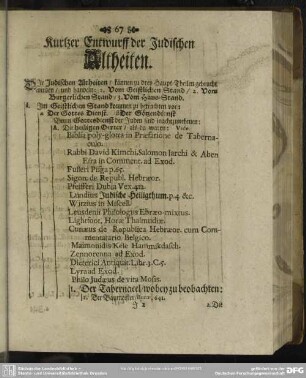 67
Kurtzer Entwurff der Jüdischen
Altheiten.
Die Jüdischen Altheiten / können zu drey Haupt-Theilen gebracht
werden / und handeln: 1. Vom Geistlichen Stand / 2. Vom
Burgerlichen Stand / 3. Vom Haus-Stand.
I. Im Geistlichen Stand kommt zu betrachten vor:
Der Gottes Dienst. Der Götzendienst
Beym Gottesdienst der Juden sind in acht zu nehmen:
A. Die heiligen Oerter / als da waren: Vid.
Biblia polyglotta in Præfatione de Taberna-
culo.
Rabbi David Kimchi, Salomon Jarchi & Aben
Esra in Comment. ad Exod.
Fulleri Pisga p.65.
Sigon. de Republ. Hebræor.
Pfeifferi Dubia Vex.
Lundius Jüdische Heiligthum. p.4 &c.
Witsius in Miscell.
Leusdenii Philologus Ebræo-mixtus.
Lightfoot, Horæ Thalmudicæ.
Cunæus de Republica Hebræor. cum Com-
mentario Belgico.
Maimonidis Kele Hammikdasch.
ad Exod.
Dieterici Antiquit. Libr.
Lyra ad Exod.
Philo Judæus de vita Mosis.
1. Der Tabernacel / wobey zu beobachten: